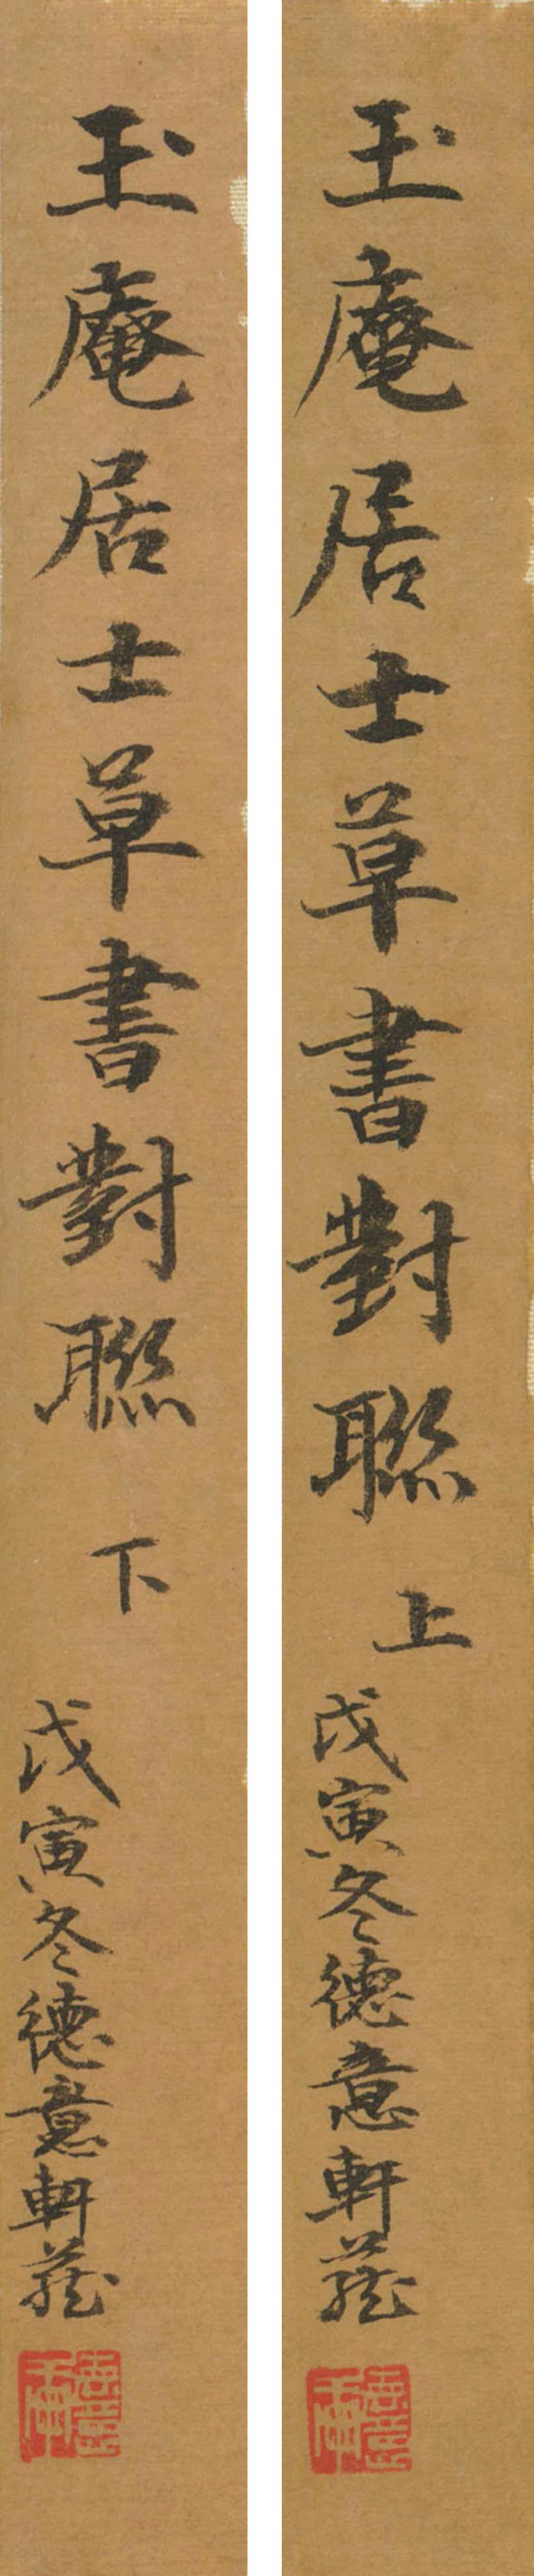 玉庵居士草書對聯 上
戊寅冬德意軒藏
玉庵居士草書對聯 下
戊寅冬德意軒藏